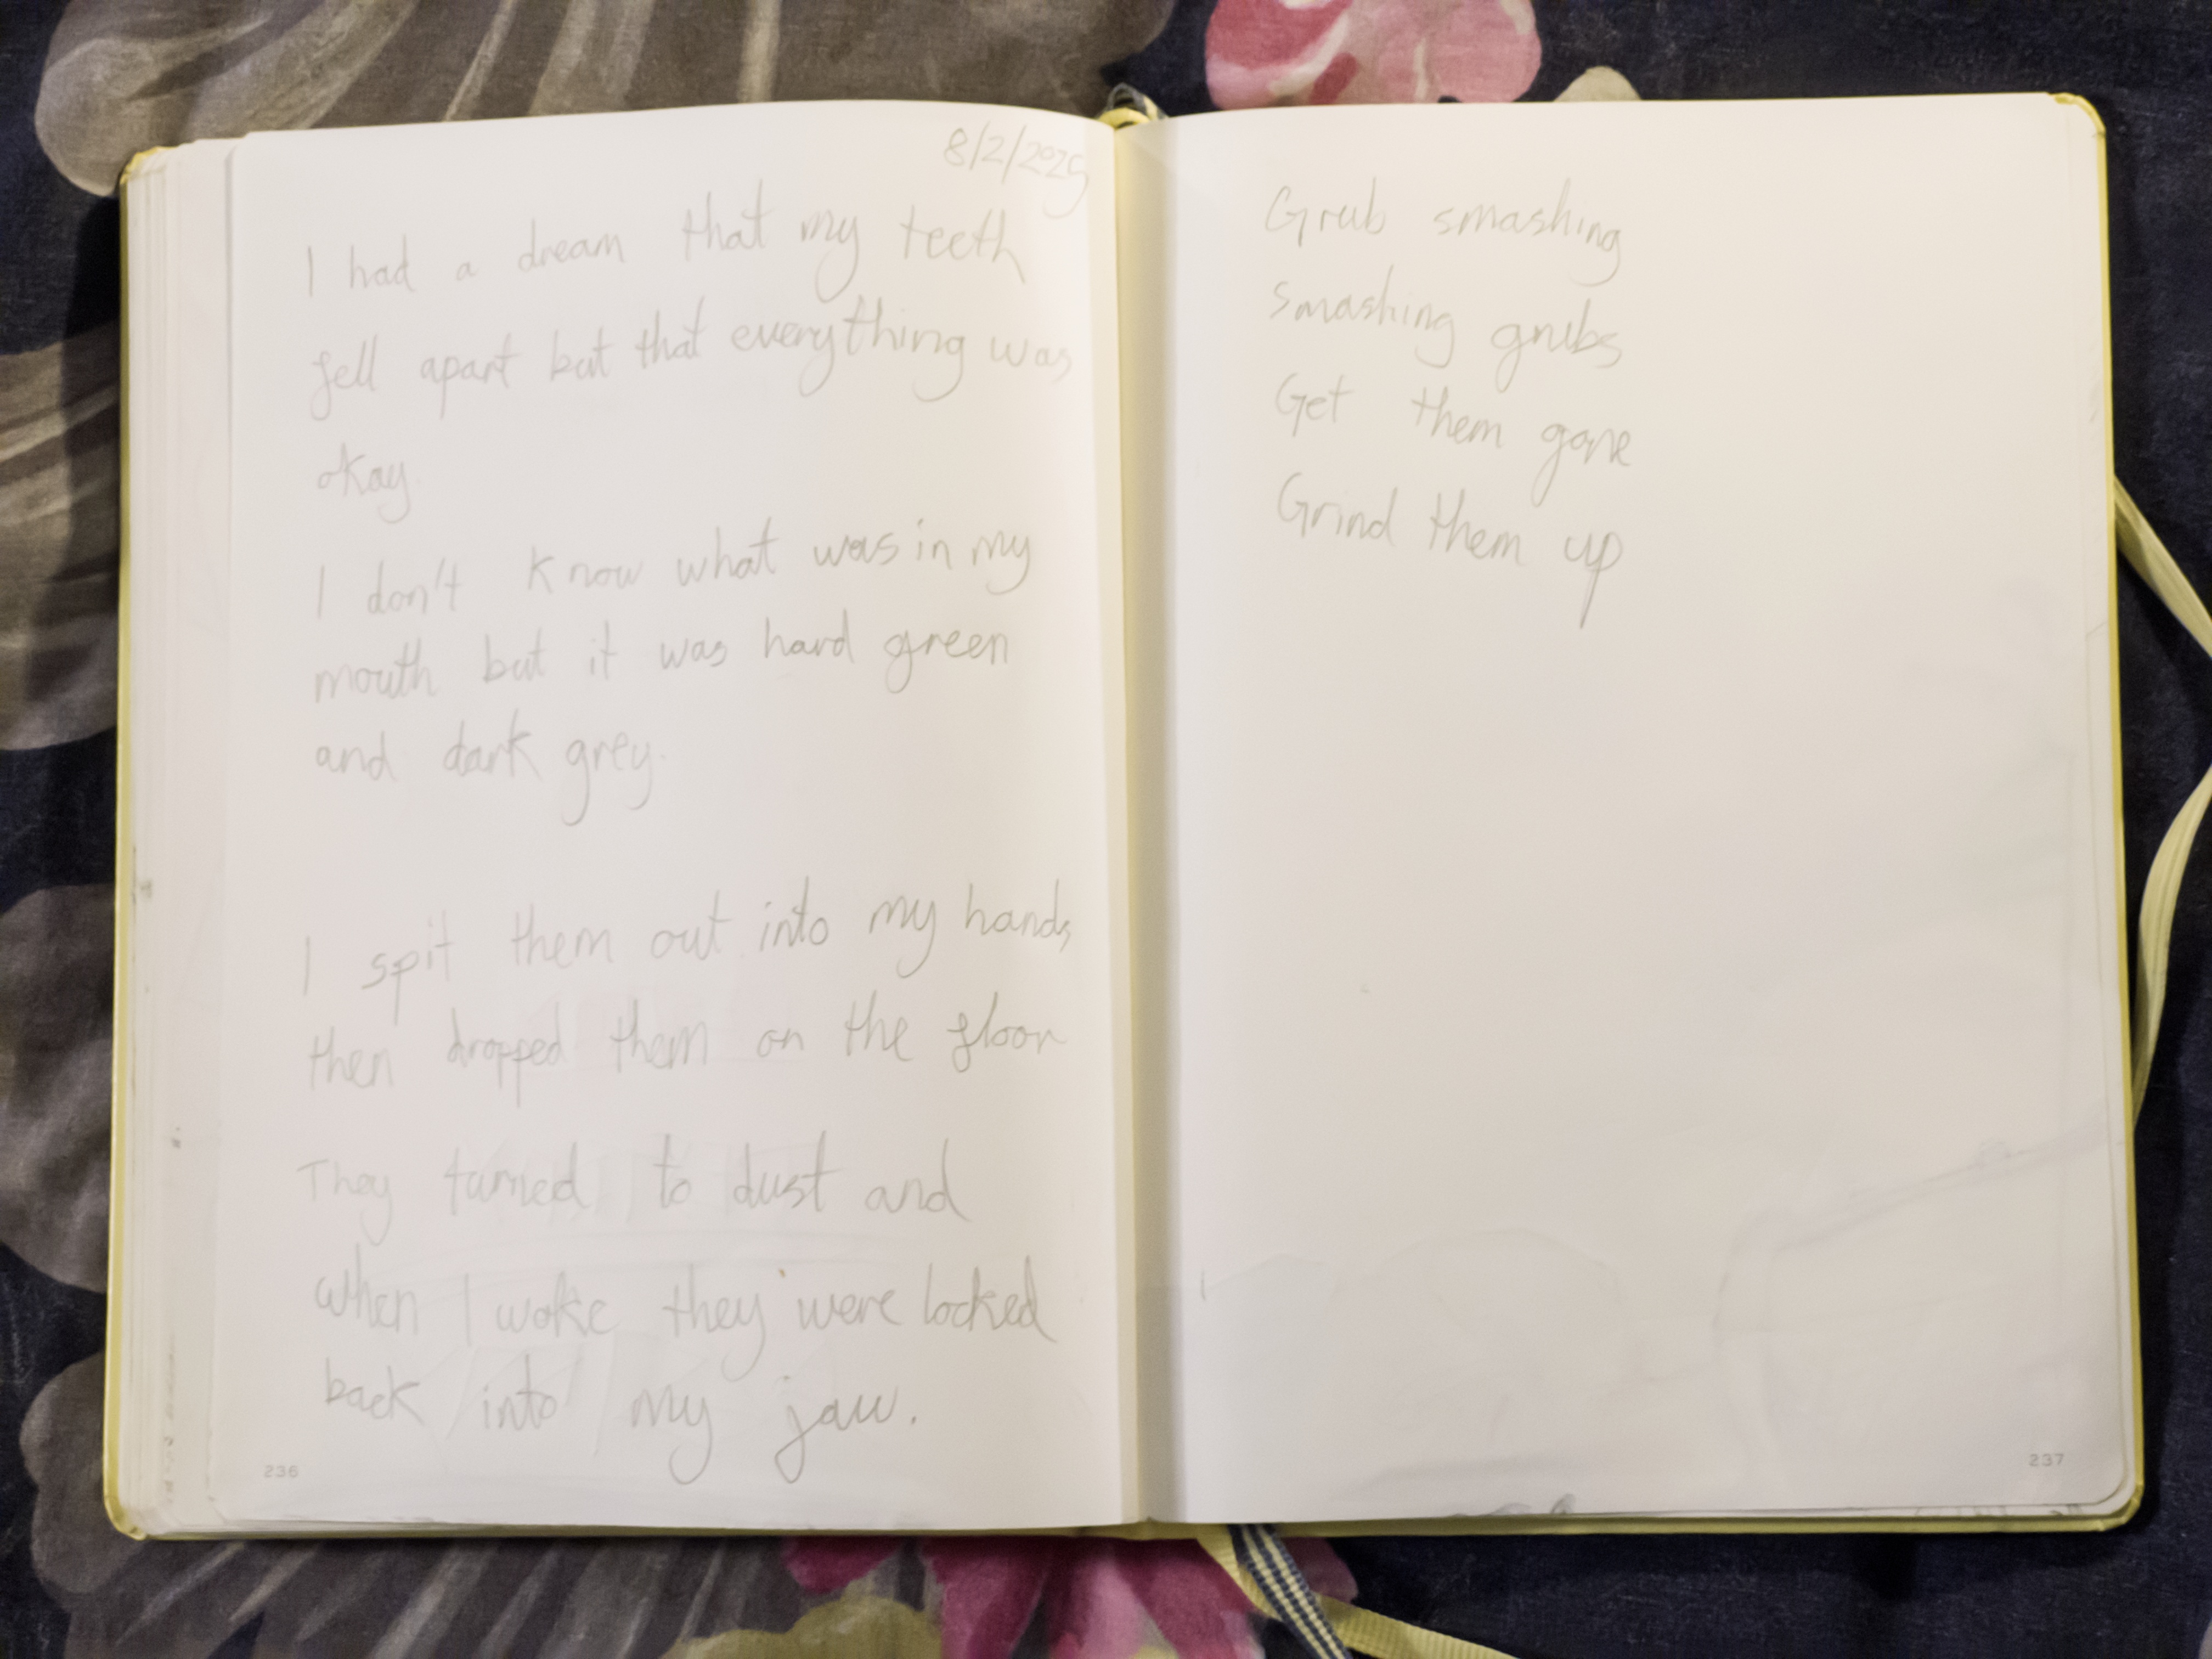 8/2/2025
I had a dream that my teeth
fell apart but that everything was
okay.
I don't know what was in my
mouth but it was hard green
and dark grey.
I spit them out into my hands
then dropped them on the floor
They turned to dust and
when I woke they were locked
back into my jaw.
236
Grub smashing
smashing grubs
Get them gone
Grind them up
237